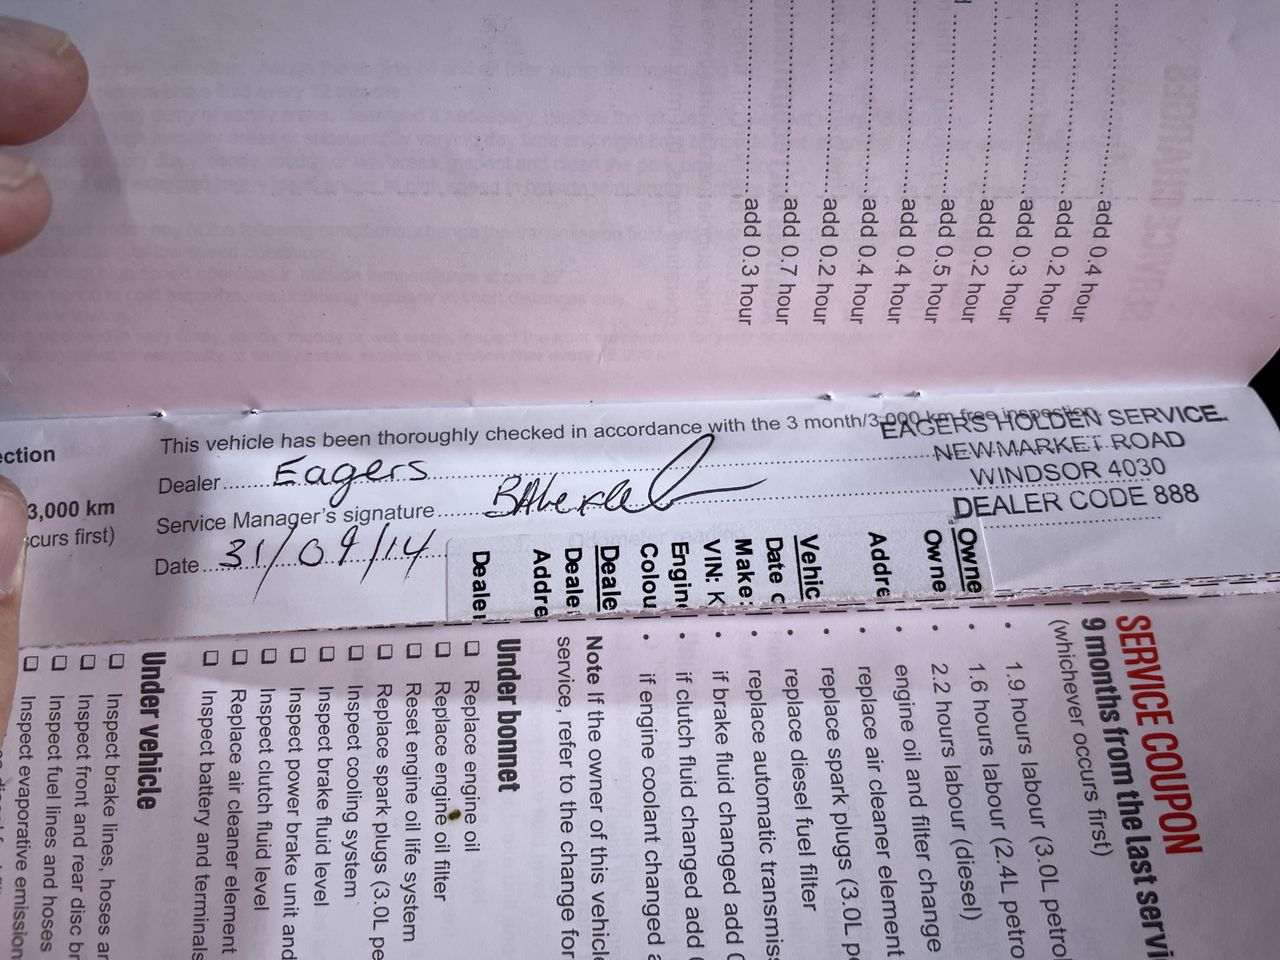 add 0.4 hour
add 0.2 hour
add 0.3 hour
add 0.2 hour
add 0.5 hour
add 0.4 hour
add 0.4 hour
add 0.2 hour
add 0.7 hour
add 0.3 hour
ection
3,000 km
curs first)
This vehicle has been thoroughly checked in accordance with the 3 month/3,000 km free inspection
Dealer Eagers
Service Manager's signature
Date 31/09/14
EAGERS HOLDEN SERVICE.
NEWMARKET ROAD
WINDSOR 4030
DEALER CODE 888
Owne
Owne
Addre
Vehic
Date o
Make:
VIN: K
Engin
Colou
Deale
Deale
Addre
Dealer
SERVICE COUPON
9 months from the last servi
(whichever occurs first)
• 1.9 hours labour (3.0L petrol
• 1.6 hours labour (2.4L petro
• 2.2 hours labour (diesel)
• engine oil and filter change
• replace air cleaner element
• replace spark plugs (3.0L pe
• replace diesel fuel filter
• replace automatic transmiss
• if brake fluid changed add 0
• if clutch fluid changed add
• if engine coolant changed a
Note If the owner of this vehicle
service, refer to the change for
Under bonnet
☐ Replace engine oil
☐ Replace engine oil filter
☐ Reset engine oil life system
☐ Replace spark plugs (3.0L pe
☐ Inspect cooling system
☐ Inspect brake fluid level
☐ Inspect power brake unit and
☐ Inspect clutch fluid level
☐ Replace air cleaner element
☐ Inspect battery and terminals
Under vehicle
☐ Inspect brake lines, hoses an
☐ Inspect front and rear disc br
☐ Inspect fuel lines and hoses
☐ Inspect evaporative emission